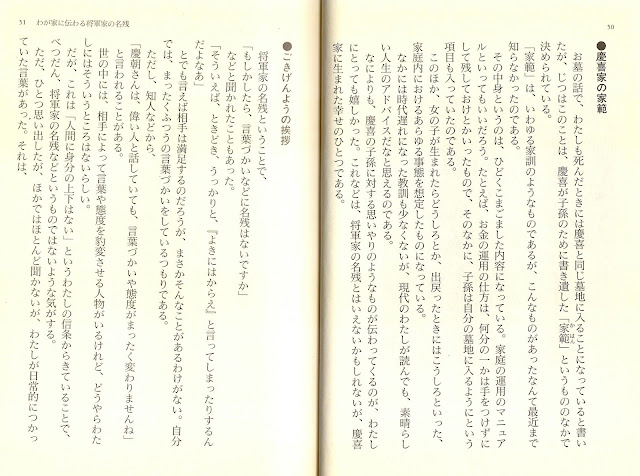 50
●慶喜家の家範
お墓の話で、わたしも死んだときには慶喜と同じ墓地に入ることになっていると書い
たが、じつはこのことは、慶喜が子孫のために書き遺した「家範」というもののなかで
決められている。
「家範」は、いわゆる家訓のようなものであるが、こんなものがあったなんて最近まで
知らなかったのである。
その中身というのは、ひどくこまごました内容になっている。家庭の運用のマニュア
ルといってもいいだろう。たとえば、お金の運用の仕方は、何分の一かは手をつけずに
して残しておけとかいったもので、そのなかに、子孫は自分の墓地に入るようにという
項目も入っていたのである。
このほか、女の子が生まれたらどうしろとか、出戻ったときにはこうしろといった、
家庭内におけるあらゆる事態を想定したものになっている。
なかには時代遅れになった教訓も少なくないが、現代のわたしが読んでも、素晴らし
い人生のアドバイスだなと思えるのである。
なによりも、慶喜の子孫に対する思いやりのようなものが伝わってくるのが、わたし
にとっても嬉しかった。これなどは、将軍家の名残とはいえないかもしれないが、慶喜
家に生まれた幸せのひとつである。
51 わが家に伝わる将軍家の名残
●ごきげんようの挨拶
将軍家の名残ということで、
「もしかしたら、言葉づかいなどに名残はないですか」
などと聞かれたこともあった。
「そういえば、ときどき、うっかりと、『よきにはからえ』と言ってしまったりするん
だよなあ」
とでも言えば相手は満足するのだろうが、まさかそんなことがあるわけがない。自分
では、まったくふつうの言葉づかいをしているつもりである。
ただし、知人などから、
「慶朝さんは、偉い人と話していても、言葉づかいや態度がまったく変わりませんね」
と言われることがある。
世の中には、相手によって言葉や態度を豹変させる人物がいるけれど、どうやらわた
しにはそういうところはないらしい。
だが、これは「人間に身分の上下はない」というわたしの信条からきていることで、
べつだん、将軍家の名残などというものではないような気がする。
ただ、ひとつ思い出したが、ほかではほとんど聞かないが、わたしが日常的につかっ
ていた言葉があった。それは、